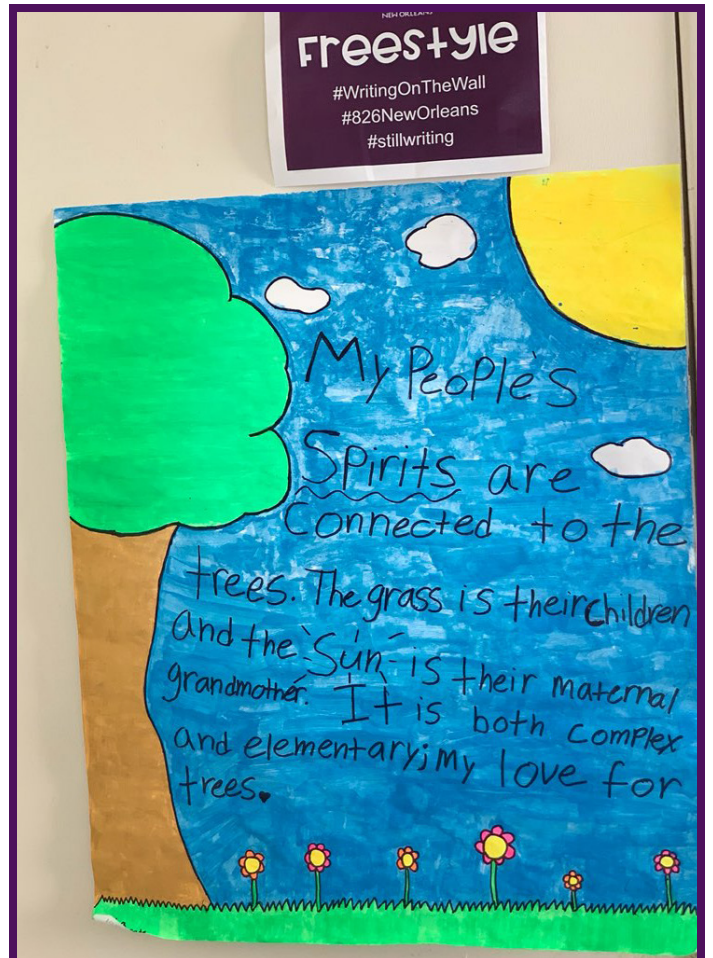 NEW ORLEANS
Freestyle
#WritingOnTheWall
#826NewOrleans
#stillwriting
My People's
Spirits are
Connected to the
trees. The grass is their children
and the Sun is their maternal
grandmother. It is both complex
and elementary; my love for
trees.